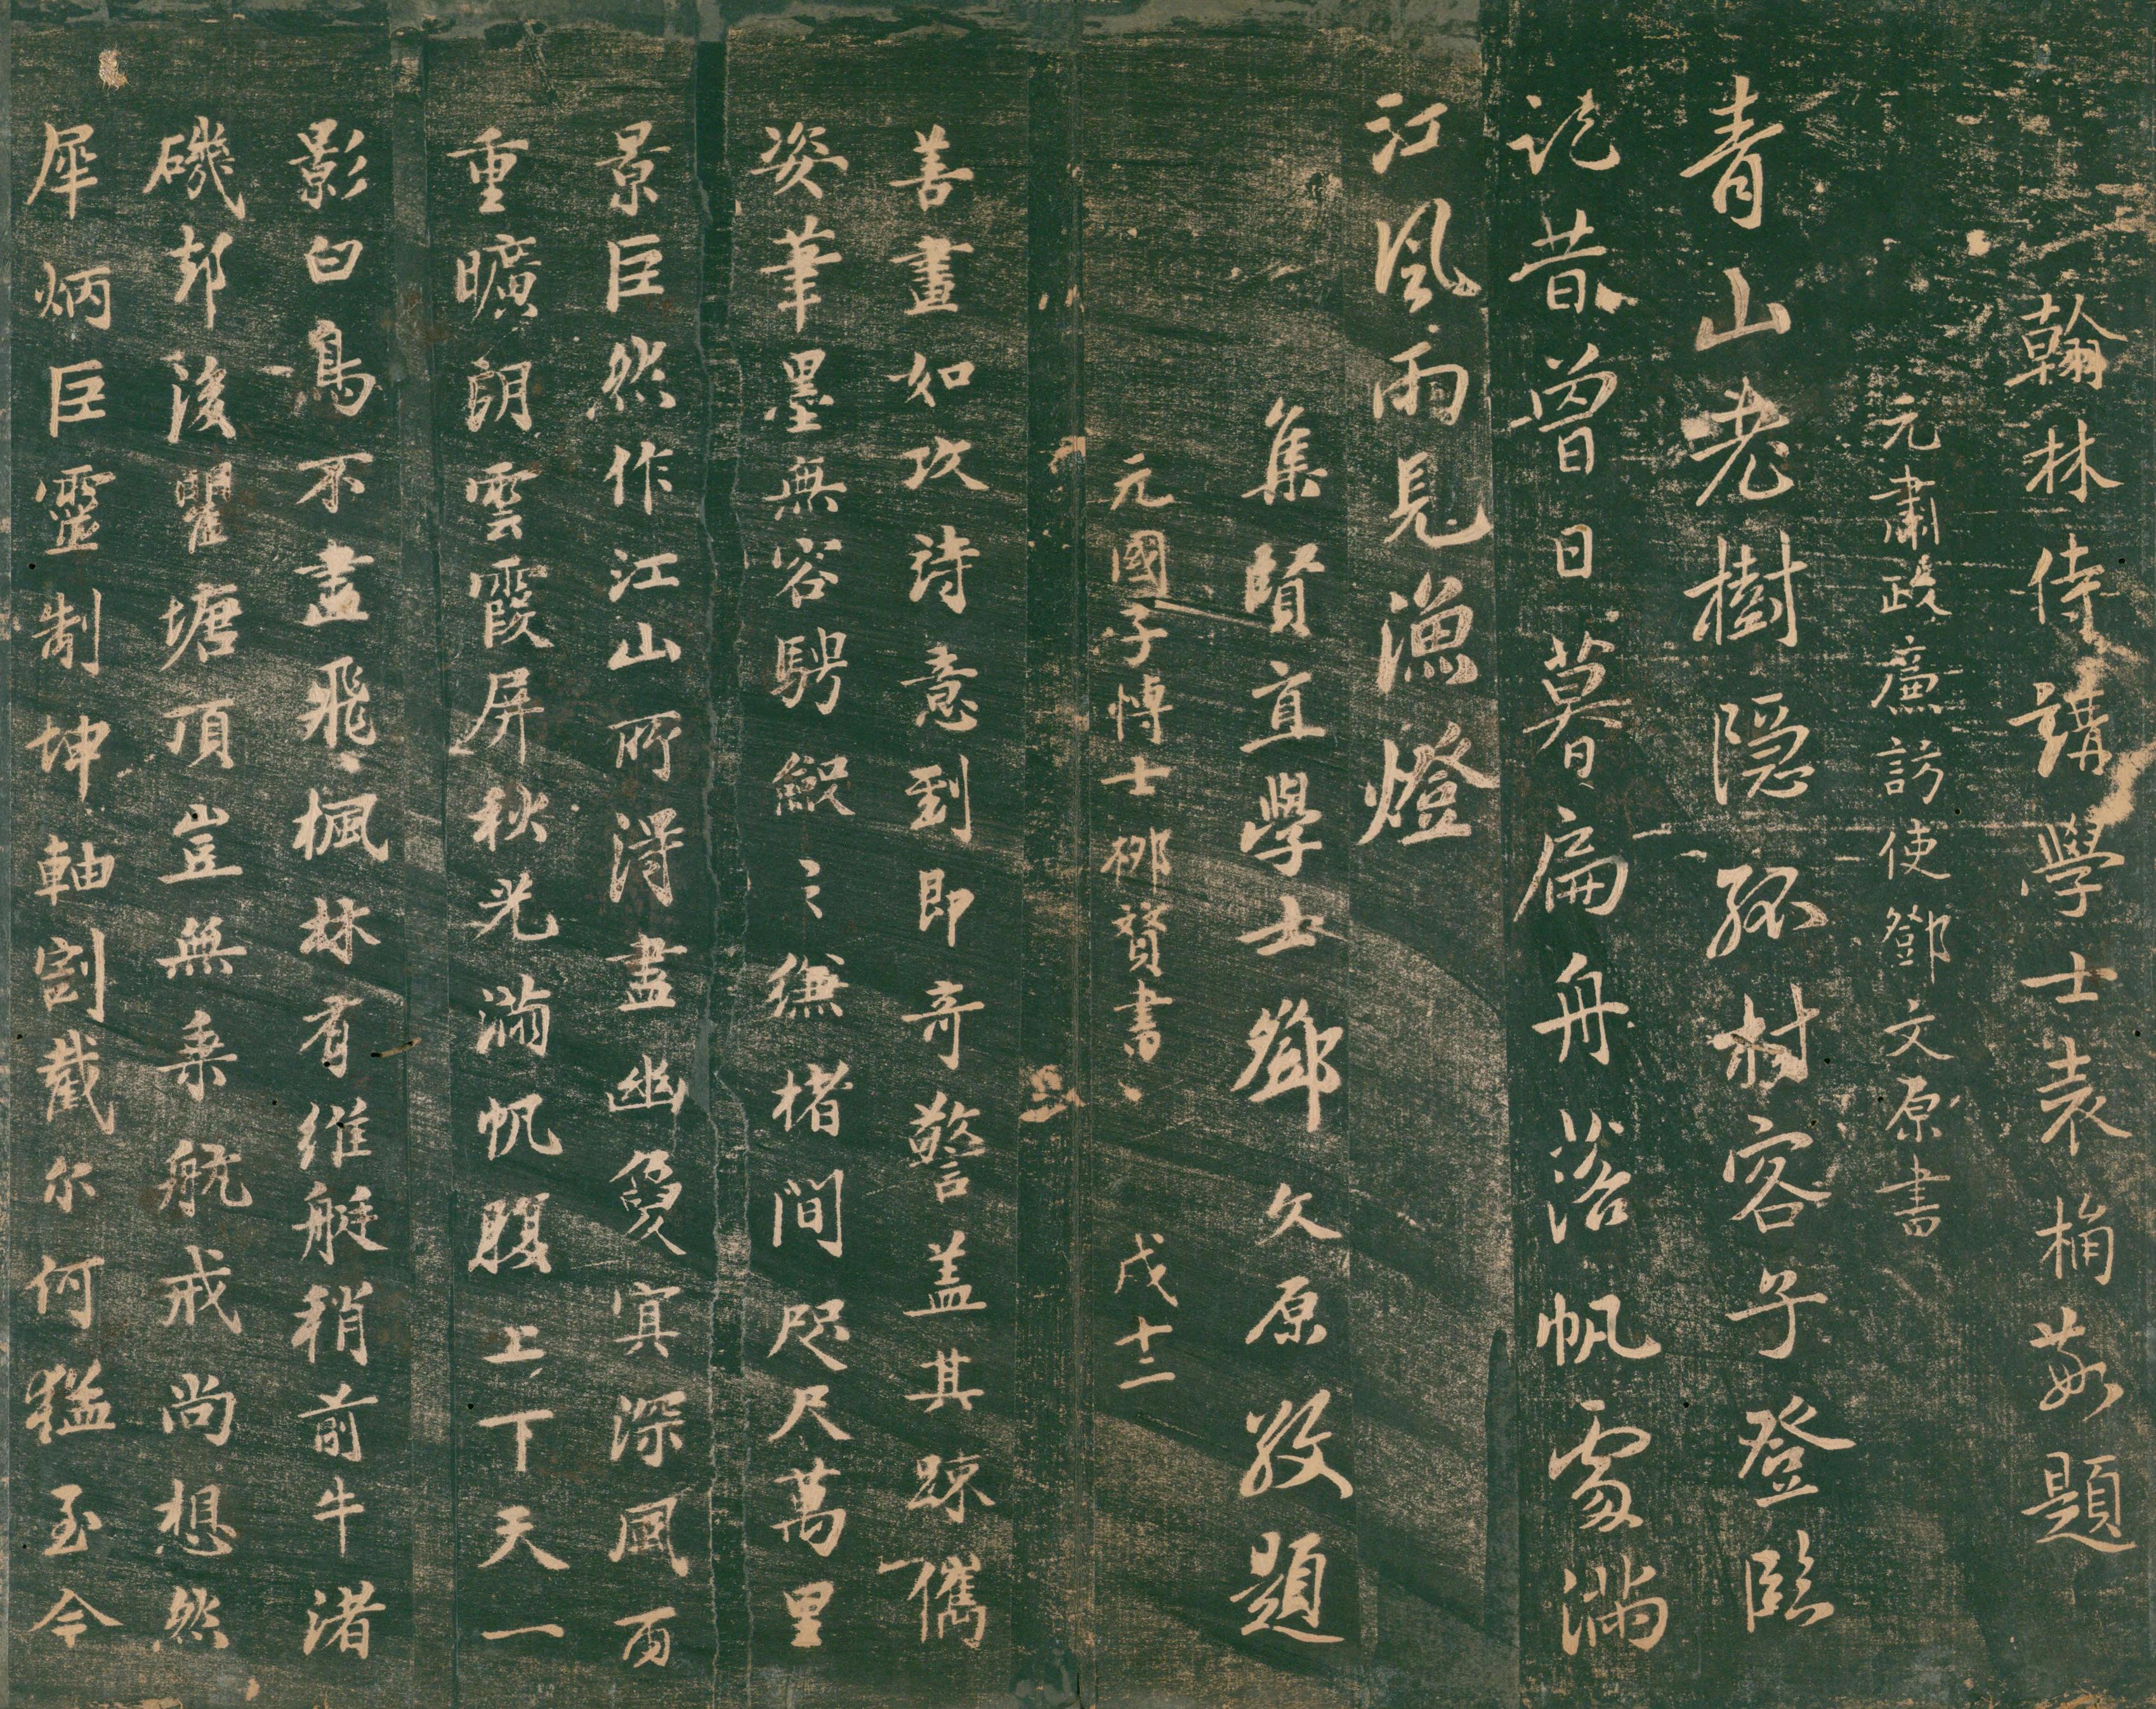 翰林侍講學士袁桷敬題
元肅政廉訪使鄧文原書
青山老樹隱孤村客子登臨
記昔曾日暮扁舟浴帆處滿
江風雨見漁燈
集賢直學士鄧文原敬題
元國子博士柳贇書
戊十二
善畫如攻詩意到即奇警蓋其疎儁
姿筆墨無容騁皦〻縑楮間咫尺萬里
景巨然作江山所得盡幽夐冥深風雨
重曠朗雲霞屏秋光滿帆腹上下天一
影白鳥不盡飛楓林有維艇稍前牛渚
磯却後瞿塘頂豈無乘航戒尚想然
犀炳巨靈制坤軸割截尔何猛至今